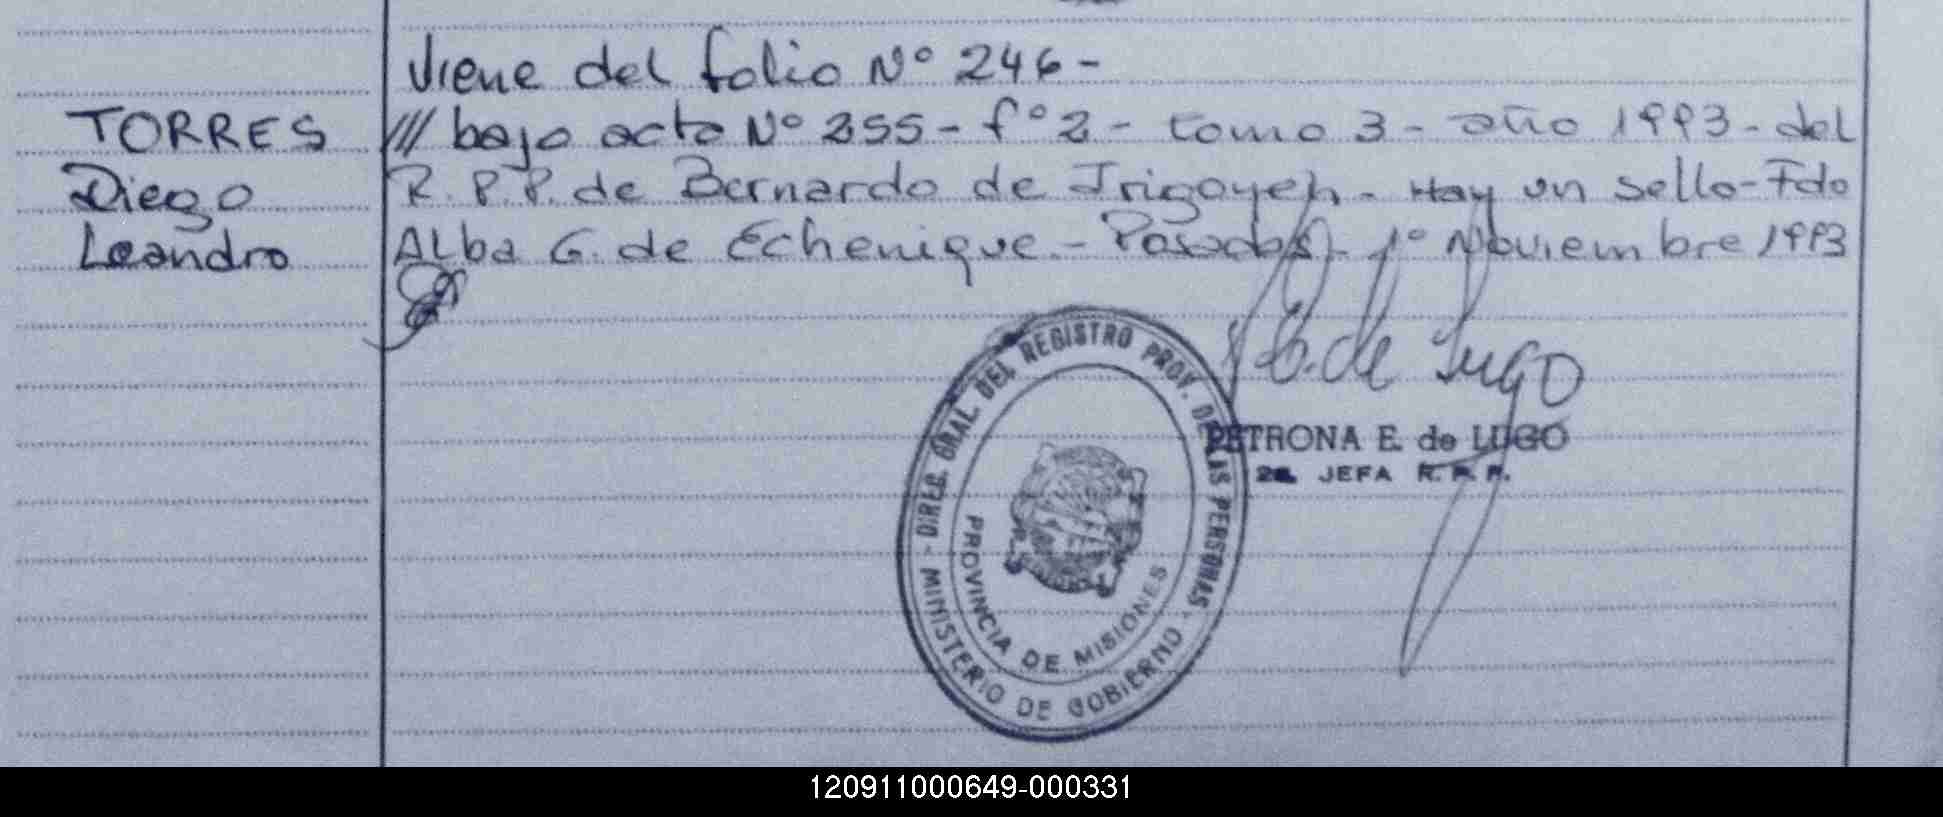 Viene del folio Nº 246-
TORRES /// bajo acta Nº 255- fº 2- tomo 3- año 1993- del
Diego R.P.P. de Bernardo de Irigoyen- Hay un sello- Fdo
Leandro Alba G. de Echenique.- Posadas, 1º Noviembre 1993
MINISTERIO DE GOBIERNO - DIREC. GRAL. DEL REGISTRO PROV. DE LAS PERSONAS -
PROVINCIA DE MISIONES
E. de Lugo
PETRONA E. de LUGO
2a. JEFA R.P.P.
120911000649-000331